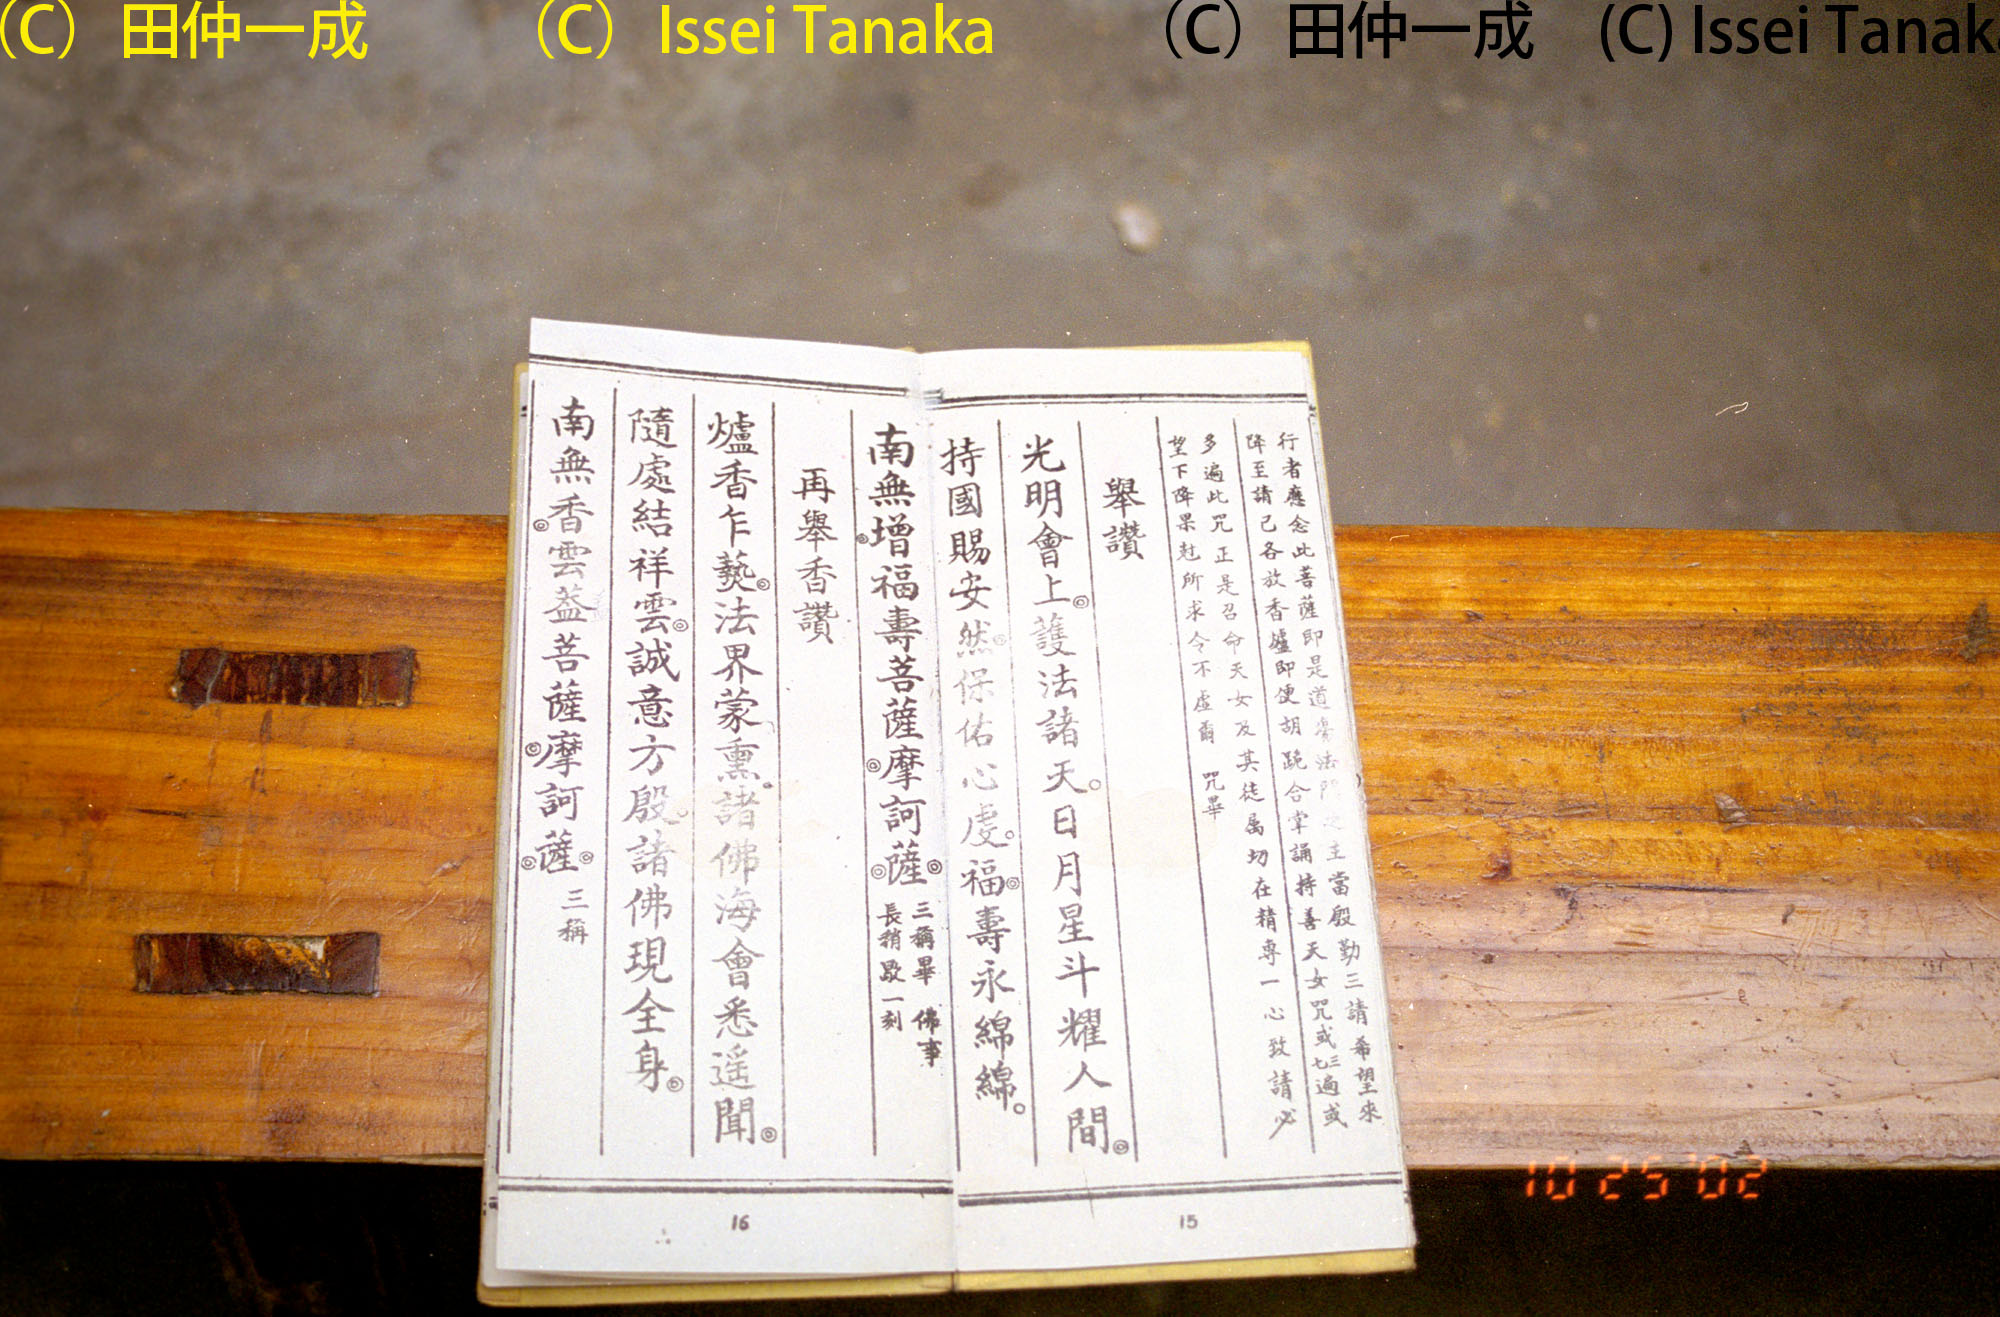 （C）田仲一成　（C）Issei Tanaka　（C）田仲一成　(C) Issei Tanaka
行者應念此菩薩即是道場法門之主當殷勤三請希望來
降至請已各放香爐即便胡跪合掌誦持善天女咒或三七遍或
多遍此咒正是召命天女及其徒属切在精専一心致請必
望下降果尅所求令不虛爾　咒畢
舉讚
光明會上◎護法諸天。日月星斗耀人間◎
持國賜安然◎保佑心虔。福◎壽永綿綿。
南無◎增福壽菩薩◎摩訶◎薩◎三稱畢　佛事
長稍歇一刻
再舉香讚
爐香乍爇◎法界蒙熏。諸佛海會悉遥聞◎
隨處結祥雲◎誠意方殷。諸佛現全身◎
南無◎香雲蓋菩薩◎摩訶◎薩◎三稱
15
16
10 25 '02